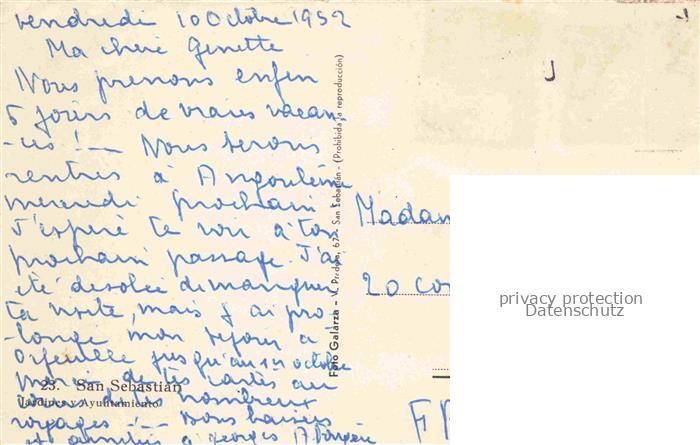 Vendredi 10 Octobre 1952
Ma chère Ginette
Nous prenons enfin
5 jours de vraies vacan-
-ces ! — Nous serons
rentrés à Angoulême
mercredi prochain
J'espère te voir à ton
prochain passage. J'ai
été désolée de manquer
ta visite, mais j'ai pro-
-longé mon séjour à
jusqu'au 1er octobre
Merci de tes cartes au
cours de nombreux
voyages ! — Bons baisers
et amitiés à Georges
23. San Sebastián
Jardines y Ayuntamiento
Foto Galarza - V. Pradera, 67 - San Sebastián - (Prohibida la reproducción)
Madam
20
F
privacy protection
Datenschutz